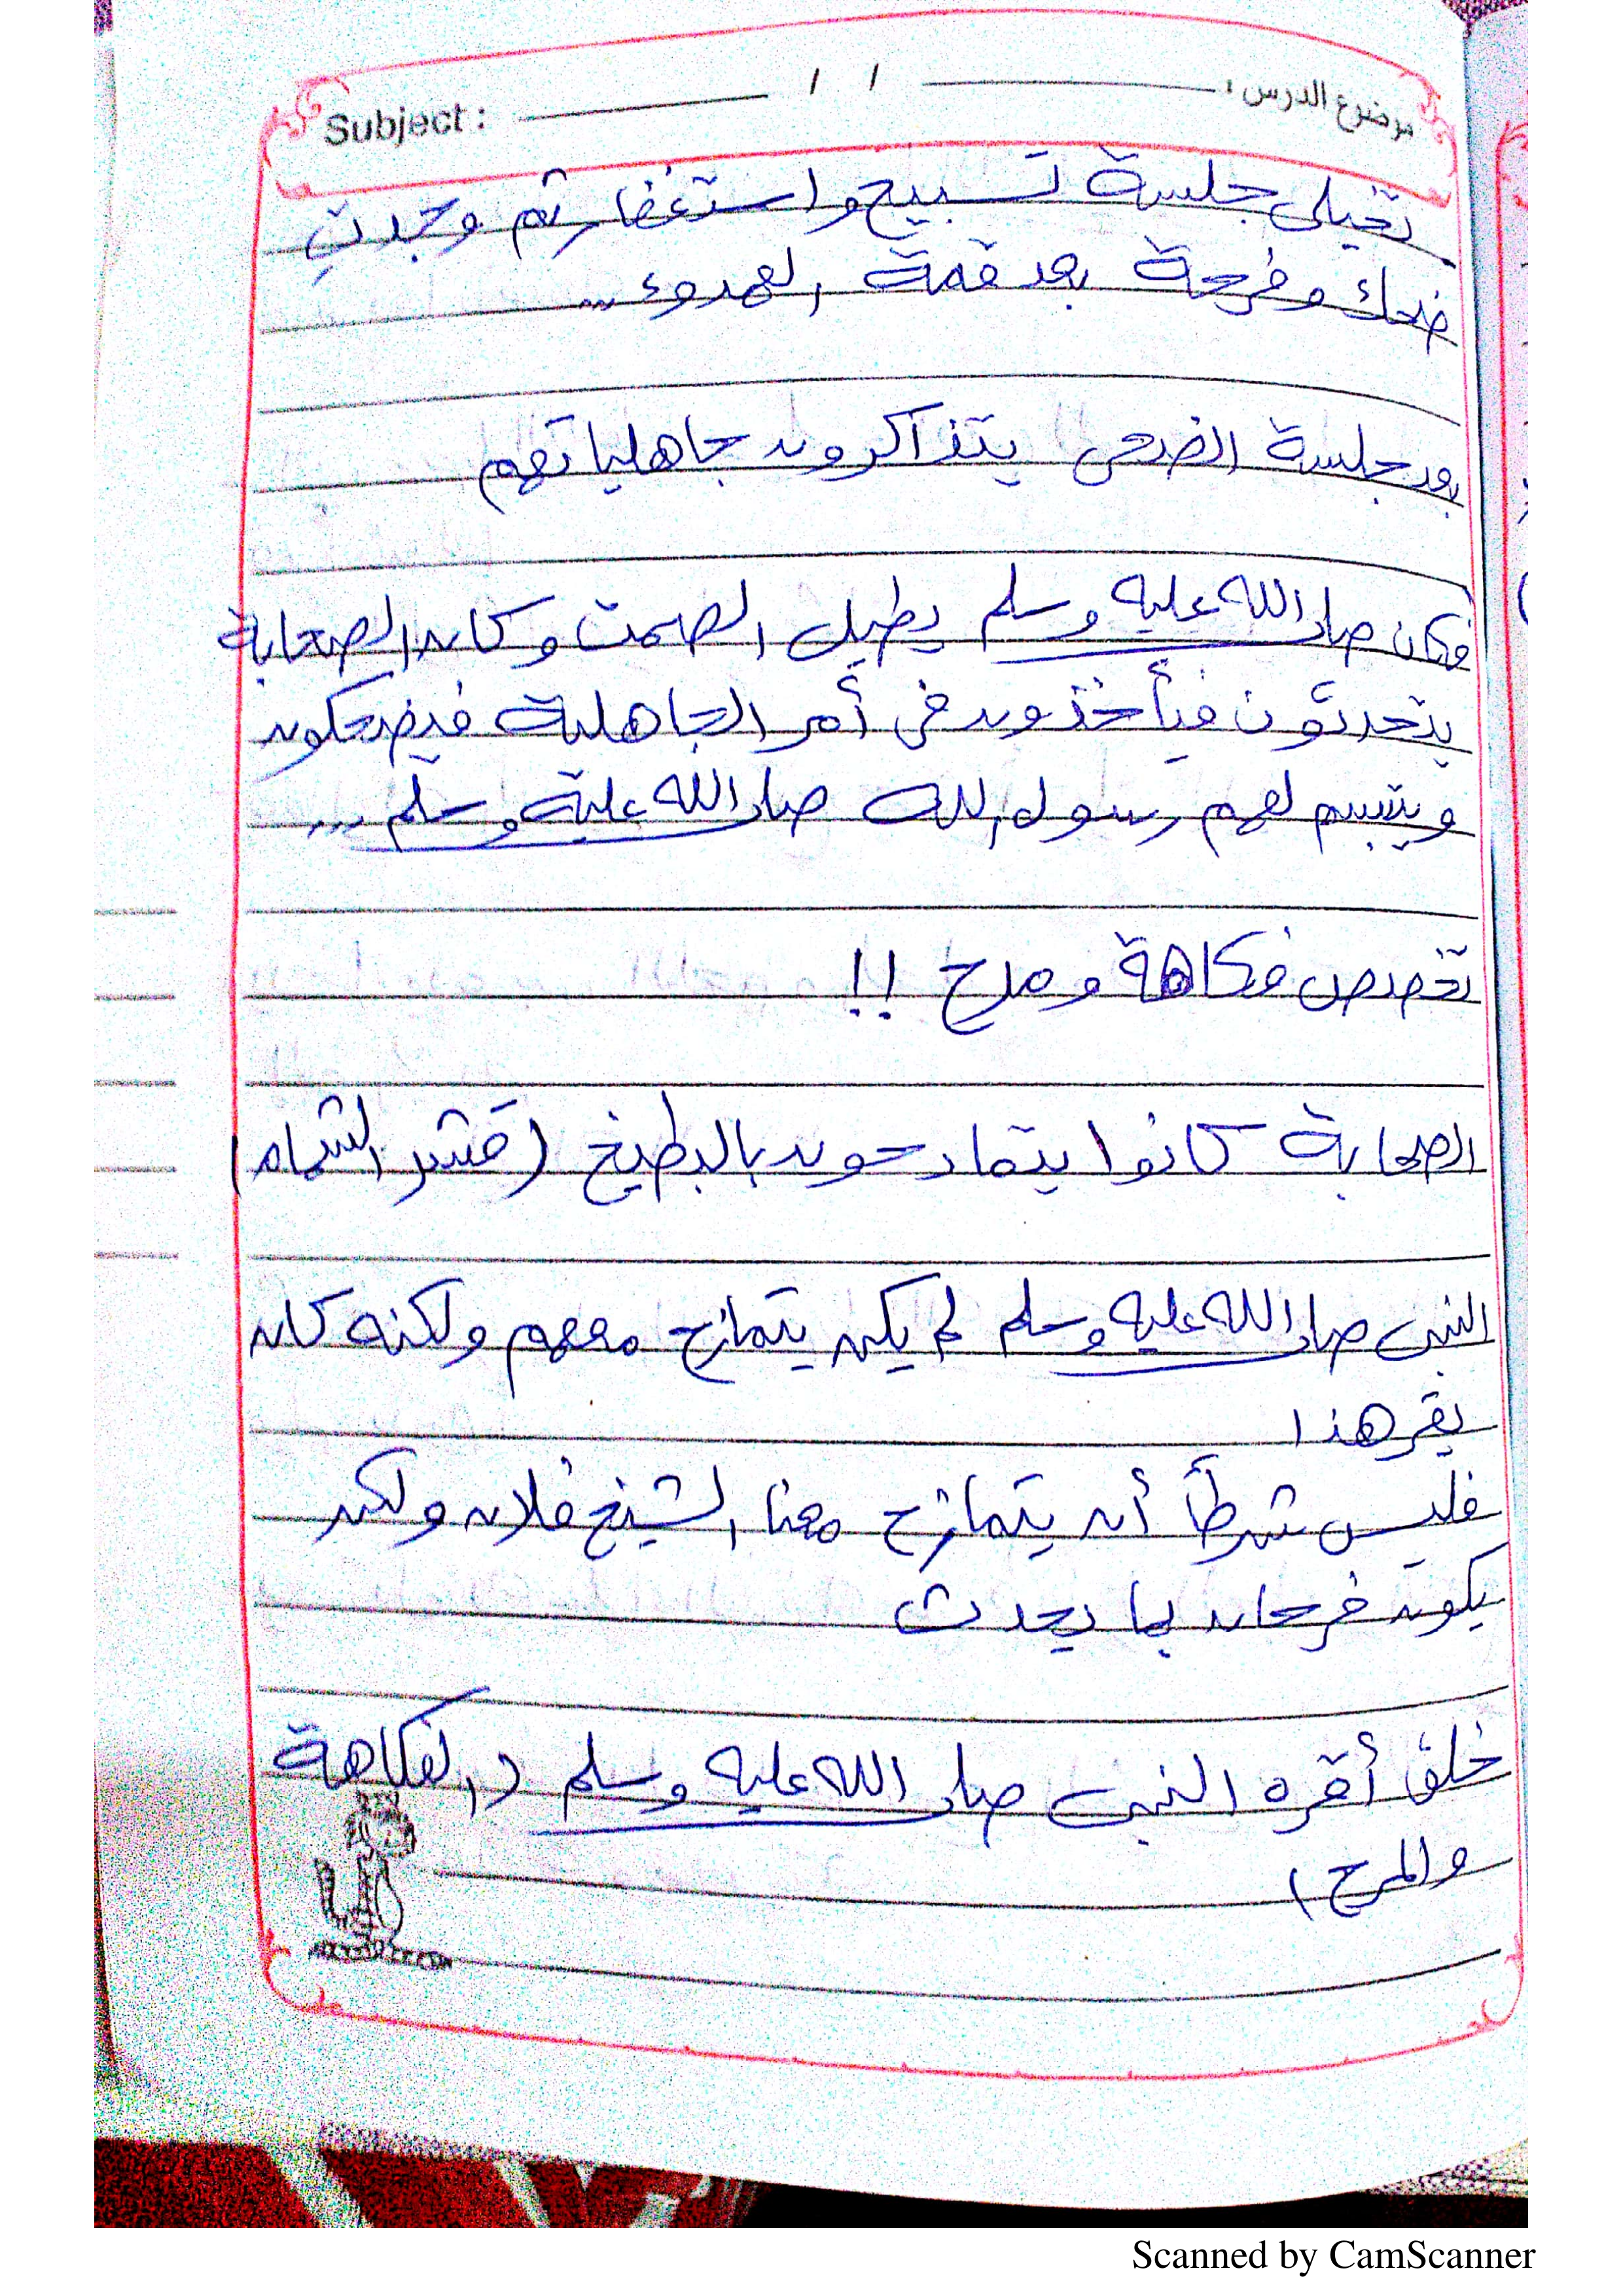 موضوع الدرس : / / Subject :
تخيلى جلسة تسبيح واستغفار ثم وجدتِ
ضحك وفرحة بعد قمة الهدوء ...
بعد جلسة الضحى يتذاكرون جاهلياتهم
فكان صلى الله عليه وسلم يطيل الصمت وكان الصحابة
يتحدثون فيأخذون فى أمر الجاهلية فيضحكون
ويتبسم لهم رسول الله صلى الله عليه وسلم ...
تخصص فكاهة ومرح !!
الصحابة كانوا يتمادحون بالبطيخ (قشر الشمام)
النبى صلى الله عليه وسلم لم يكن يتمازح معهم ولكنه كان
يقر هذا
فليس شرطاً أن يتمازح معنا الشيخ فلان ولكن
يكون فرحان بما يحدث
خلق أقره النبى صلى الله عليه وسلم (الفكاهة
والمرح)
Scanned by CamScanner